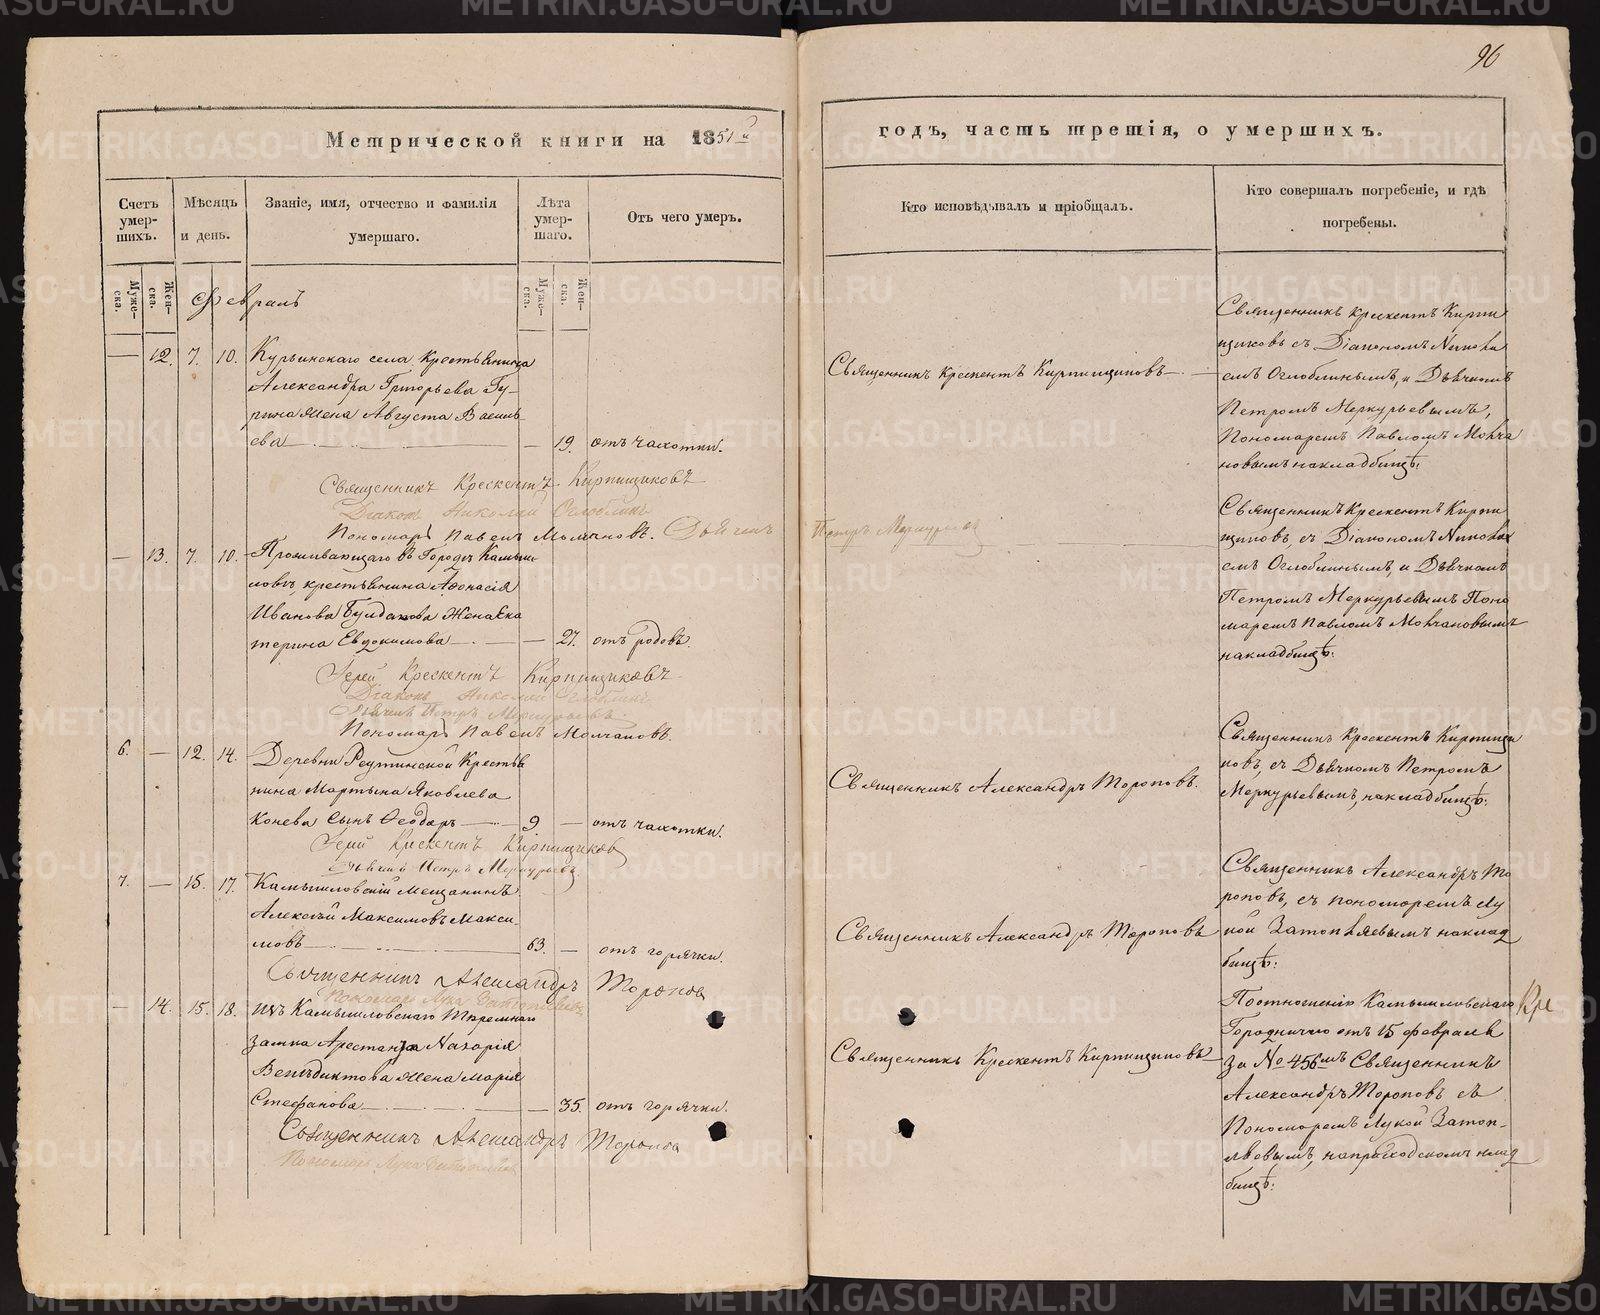 96
Метрической книги на 1851й
годъ, часть третія, о умершихъ.
Счетъ умер-шихъ.
Мѣсяцъ и день.
Званіе, имя, отчество и фамилія умершаго.
Лѣта умер-шаго.
Отъ чего умеръ.
Кто исповѣдывалъ и пріобщалъ.
Кто совершалъ погребеніе, и гдѣ погребены.
Муже-ска.
Жен-ска.
Муже-ска.
Жен-ска.
Февраль
— 12. 7. 10. Курьинскаго села Крестьянина
Александра Григорьева Гу-
рина жена Августа Василь
ева — 19. отъ чахотки.
Священникъ Крескентъ Кирпищиковъ
Священникъ Крескентъ Кирпи
щиковъ съ Діакономъ Никола
емъ Оглоблинымъ, и Дьячкомъ
Петромъ Меркурьевымъ,
Пономаремъ Павломъ Молча
новымъ накладбищѣ.
Священникъ Крескентъ Кирпищиковъ
Діаконъ Николай Оглоблинъ
Пономарь Павелъ Молчановъ. Дьячекъ Петръ Меркурьевъ
— 13. 7. 10. Проживающаго въ Городѣ Камыш
ловѣ, крестьянина Афонасія
Иванова Булдакова Жена Ека
терина Евдокимова — 27. отъ родовъ.
Священникъ Крескентъ Кирпи
щиковъ, съ Діакономъ Никола
емъ Оглоблинымъ, и Дьячкомъ
Петромъ Меркурьевымъ Поно
маремъ Павломъ Молчановымъ
накладбищѣ.
Іерей Крескентъ Кирпищиковъ
Діаконъ Николай Оглоблинъ
Дьячекъ Петръ Меркурьевъ
Пономарь Павелъ Молчановъ.
6. — 12. 14. Деревни Реутинской Крестья
нина Мартына Яковлева
Конева Сынъ Ѳеодоръ — 9 — отъ чахотки.
Священникъ Александръ Тороповъ.
Священникъ Крескентъ Кирпищи
ковъ, съ Дьячкомъ Петромъ
Меркурьевымъ, накладбищѣ.
Іерей Крескентъ Кирпищиковъ
Дьячекъ Петръ Меркурьевъ
7. — 15. 17. Камышловскій мещанинъ
Алексѣй Максимовъ Макси
мовъ — 63. — отъ горячки.
Священникъ Александръ Тороповъ
Священникъ Александръ То
роповъ, съ пономаремъ Лу
кой Затопляевымъ наклад
бищѣ.
Священникъ Александръ Тороповъ
Пономарь Лука Затопляевъ
— 14. 15. 18. Изъ Камышловскаго Тюремнаго
замка Арестанта Назарія
Венедиктова жена Марія
Стефанова — 35. отъ горячки.
Священникъ Крескентъ Кирпищиковъ
Поотношенію Камышловскаго
Городничаго отъ 15 февраля
за № 456мъ Священникъ
Александръ Тороповъ съ
Пономаремъ Лукой Затоп-
ляевымъ, наприходскомъ клад
бищѣ.
Кре
Священникъ Александръ Тороповъ
Пономарь Лука Затопляевъ